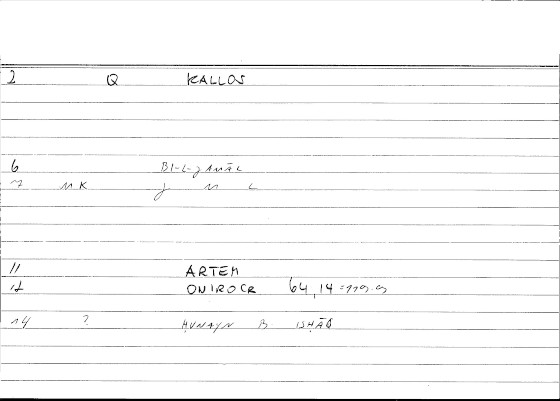 2 Q KALLOS
6 BI-L-ǧAMĀL
7 MK ǧ M L
11 ARTEM
12 ONIROCR 64,14 = 119.9
14 ? ḤUNAYN B ISḤĀQ